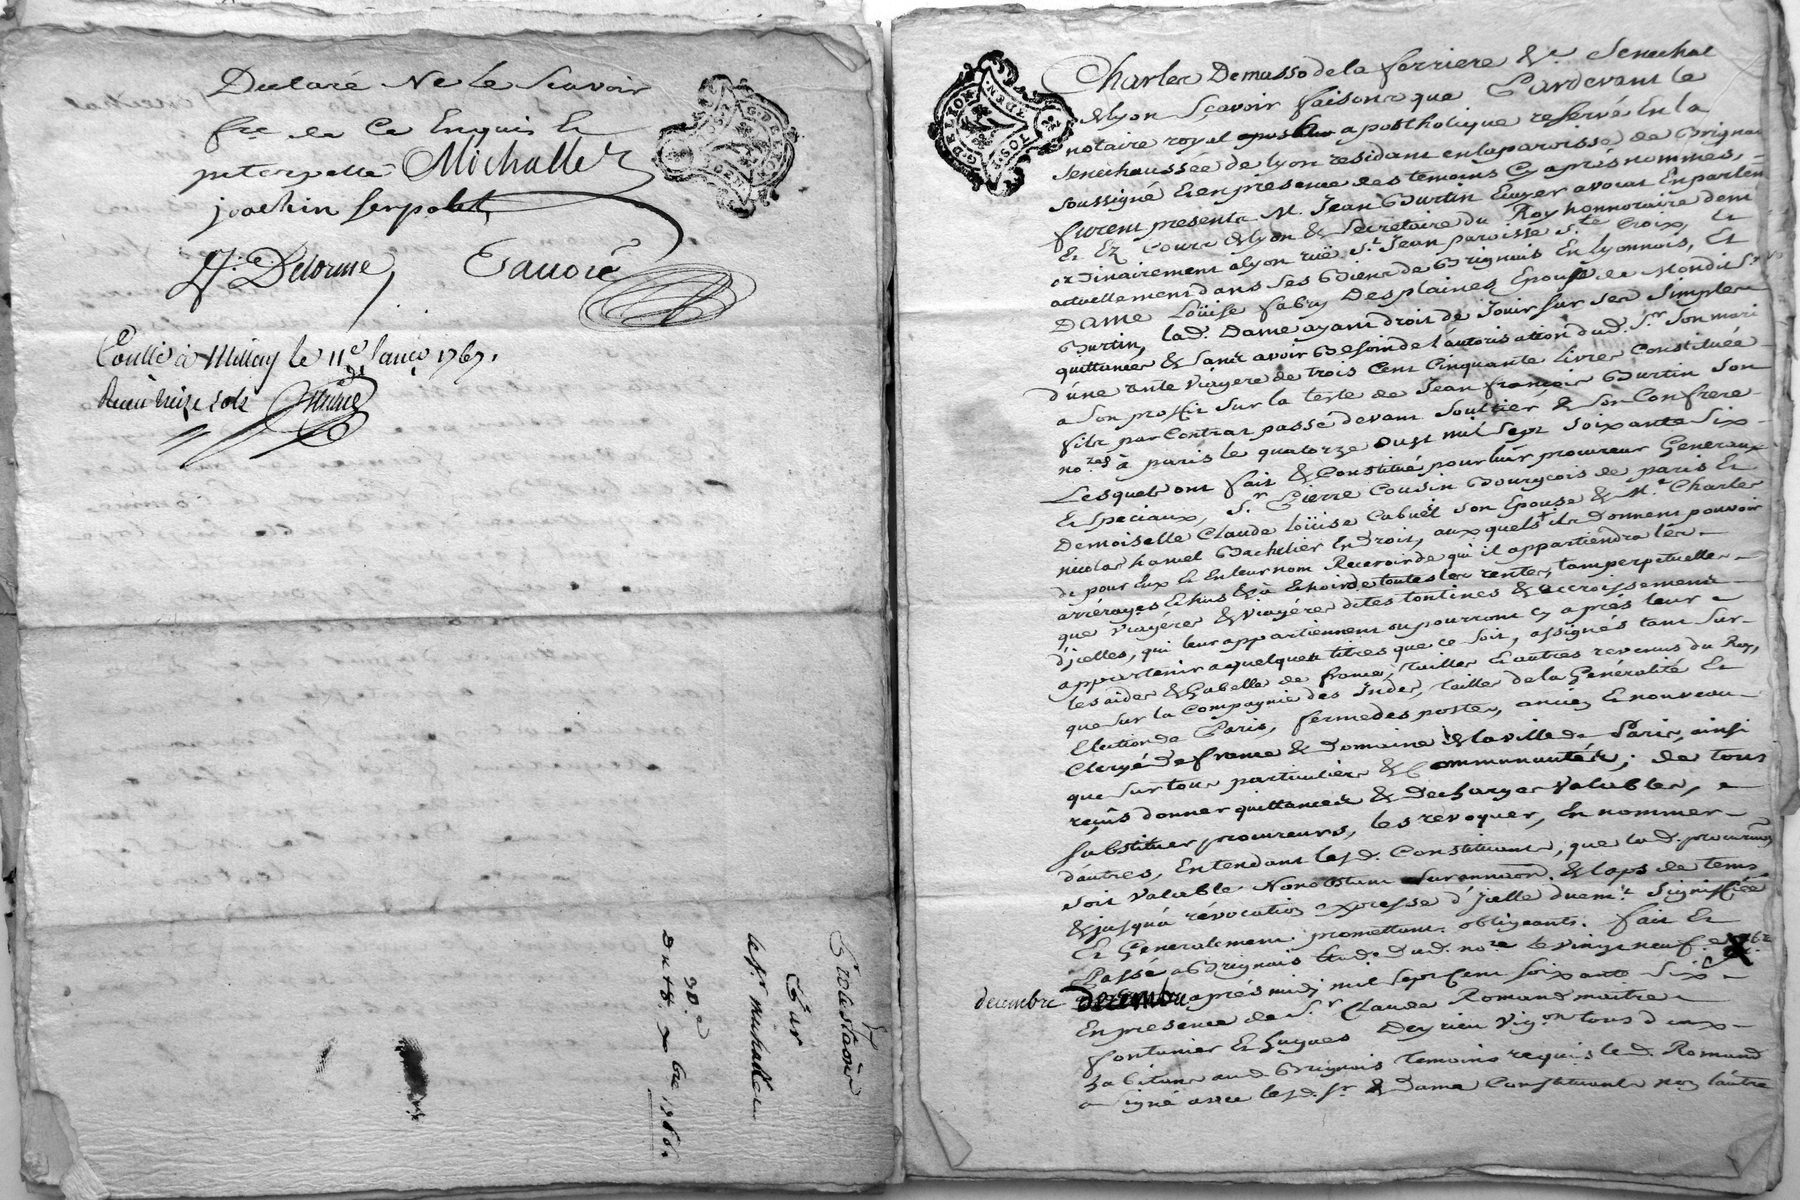 Declaré Ne le Scavoir
de Ce Enquis Et
interpellé Michalle
joachin serpolet
Delorme
à Millery le 11e Janvr 1767.
sols
Protestaõn
Par
le sr. michalle
30.e
Du 18. xbre 1766.
G. DE LYON
Charles Demasso de la ferriere &c. Senechal
de lyon Scavoir faisons que Pardevant le
notaire royal apostholique reservé En la
Senechaussée de lyon residant en la paroisse de Brignais
soussigné Et en presence des temoins Cy aprés nommés,
furent presents M. Jean Burtin Ecuyer avocat En parlem
Et Ez Cours de lyon & Secretaire du Roy honnoraire dem
ordinairement alyon ruë St. Jean paroisse Ste Croix, Et
actuellement dans ses Biens de Brignais En lyonnois, Et
DAME Loüise fabry Desplaines Epouse de Mondit Sr
Burtin, lad. Dame ayant droit de Joüir sur ses simples
quittances & sans avoir Besoin de l'autorisation dud. Sr. son mari
d'une rente viagere de trois Cent Cinquante livres Constituée
a son profit sur la teste de Jean françois Burtin son
fils par Contrat passé devant Soultier & son Confrere
no.res à paris le quatorze aoust mil sept soixante six
Lesquels ont fait & Constitué pour leur procureur Generaux
& speciaux, Sr. Pierre Cousin Bourgeois de paris Et
Demoiselle Claude Loüise Cabuël son Epouse & M.e Charles
nicolas hamel Bachelier En Droit, auxquels ils donnent pouvoir
de pour Eux & En leur nom Recevoir de qui il appartiendra les
arrérages Echus & à Echoir de toutes les rentes, tam perpetuelles
que viagéres dites tontines & accroissement
d'jcelles, qui leur appartiennent ou pourront cy aprés leur
appartenir a quelques titres que ce soit, assignés tant sur
les aides & Gabelle de france, tailles & autres revenus du Roy,
que sur la Compagnie des Indes, tailles de la Généralité Et
Election de Paris, fermes des postes, ancien & nouveau
Clergé de france & Domaine de la ville de Paris, ainsi
que sur tous particuliers & Communautés; de tous
reçûs donner quittances & Decharges valables,
substituer procureurs, les revoquer, En nommer
d'autres, Entendant lesd. Constituants, que lad. procuration
soit valable Nonobstant Surannaõn & laps de tems
& jusqu'à révocation expresse d'jcelle duem.t signiffiée
Et Generalement promettant obligeants. fait Et
Passé a Brignais Etude dud. no.re le vingt neuf
decembre decembre aprés midy mil sept cent soixante six
En presence de Sr. Claude Romand maitre
fontanier Et hugues Deyrieu vig.on tous deux
habitans aud Brignais temoins requis led. Romand
a signé avec lesd. sr. & Dame Constituants non l'autre